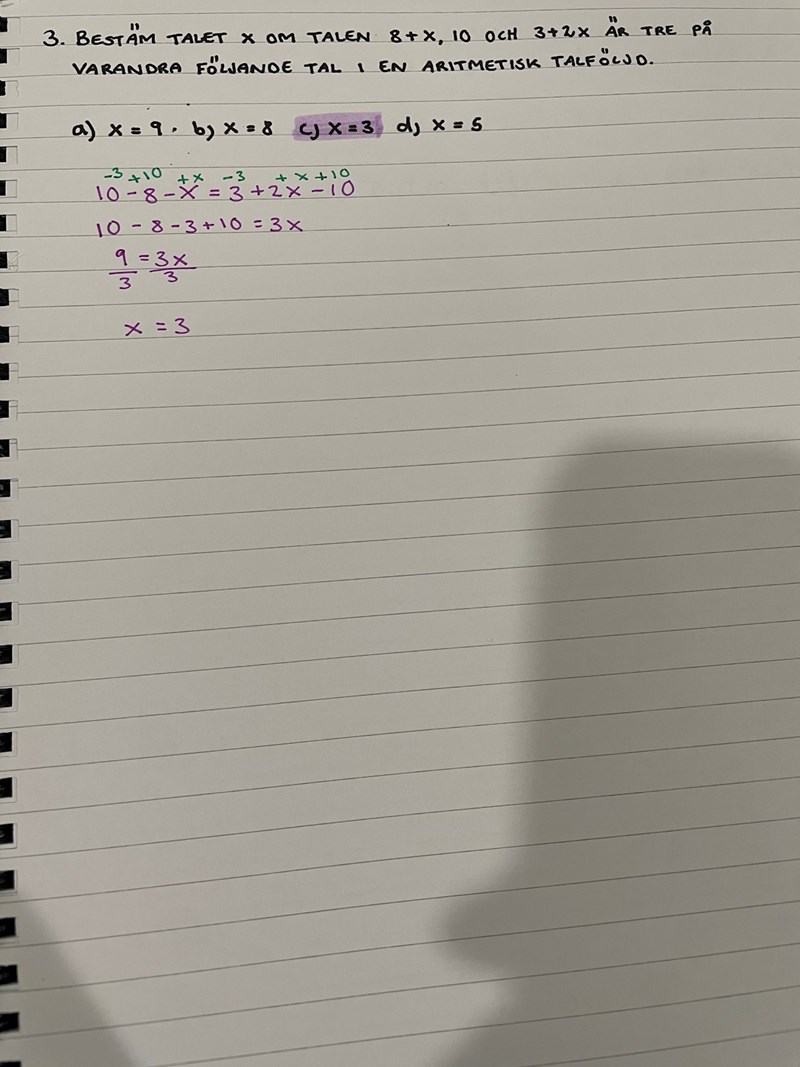 3. BESTÄM TALET X OM TALEN 8+X, 10 OCH 3+2X ÄR TRE PÅ
VARANDRA FÖLJANDE TAL I EN ARITMETISK TALFÖLJD.
a) x = 9. b) x = 8 c) x = 3 d) x = 5
-3 +10 +x -3 + x +10
10 - 8 - x = 3 + 2x - 10
10 - 8 - 3 + 10 = 3x
9 = 3x
3 3
x = 3